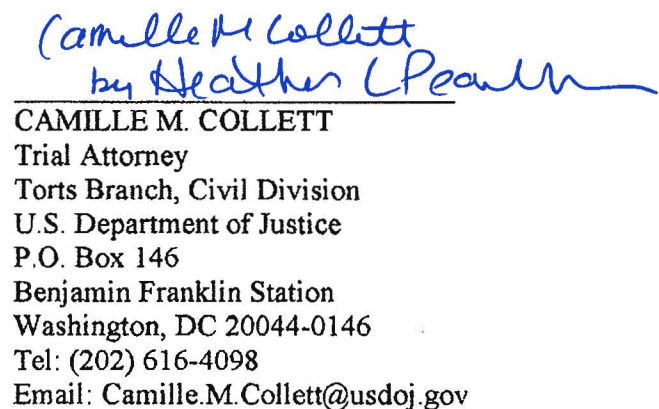 Camille M Collett
by Heather L Pearlman
CAMILLE M. COLLETT
Trial Attorney
Torts Branch, Civil Division
U.S. Department of Justice
P.O. Box 146
Benjamin Franklin Station
Washington, DC 20044-0146
Tel: (202) 616-4098
Email: Camille.M.Collett@usdoj.gov